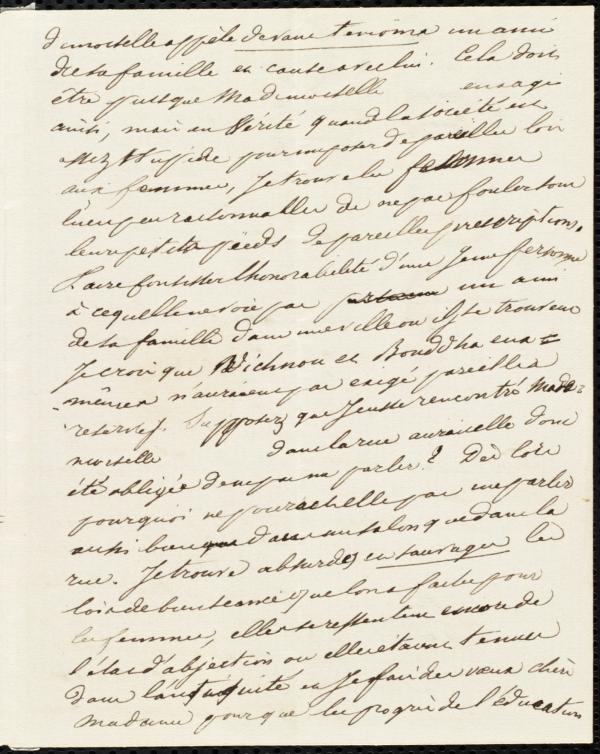 demoiselle appèle devant témoins un ami
de sa famille et cause avec lui. Cela doit
être puisque Mademoiselle en a agi
ainsi, mais en Vérité quand la société est
assez stupide pour imposer de pareilles lois
aux femmes, Je trouve les femmes
bien peu raisonnables de ne pas fouler sous
leurs petits pieds de pareilles prescriptions.
Faire consister l'honorabilité d'une Jeune personne
à ce qu'elle ne voie pas un ami
de sa famille dans une ville où ils se trouvent
Je crois que Wichnou et Bouddha eux=
-mêmes n'auraient pas exigé pareilles
réserves. Supposez que J'eusse rencontré Made=
moiselle dans la rue aurait elle donc
été obligée de ne pas me parler? Dès lors
pourquoi ne pourrait elle pas me parler
aussi bien dans un salon que dans la
rue. Je trouve absurdes et sauvages les
lois de bienséance que l'on a faites pour
les femmes, elles se ressentent encore de
l'état d'abjection où elles étaient tenues
dans l'antiquité et Je fais des vœux chère
madame pour que les progrès de l'éducation